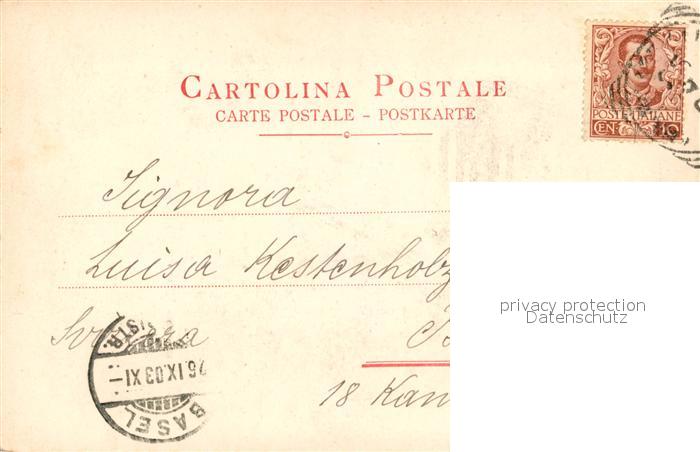 CARTOLINA POSTALE
CARTE POSTALE - POSTKARTE
POSTE ITALIANE
CENT 10
Signora
Luisa Kestenholz
Svizzera
18 Kan
BASEL
26.IX.03 XI
privacy protection
Datenschutz